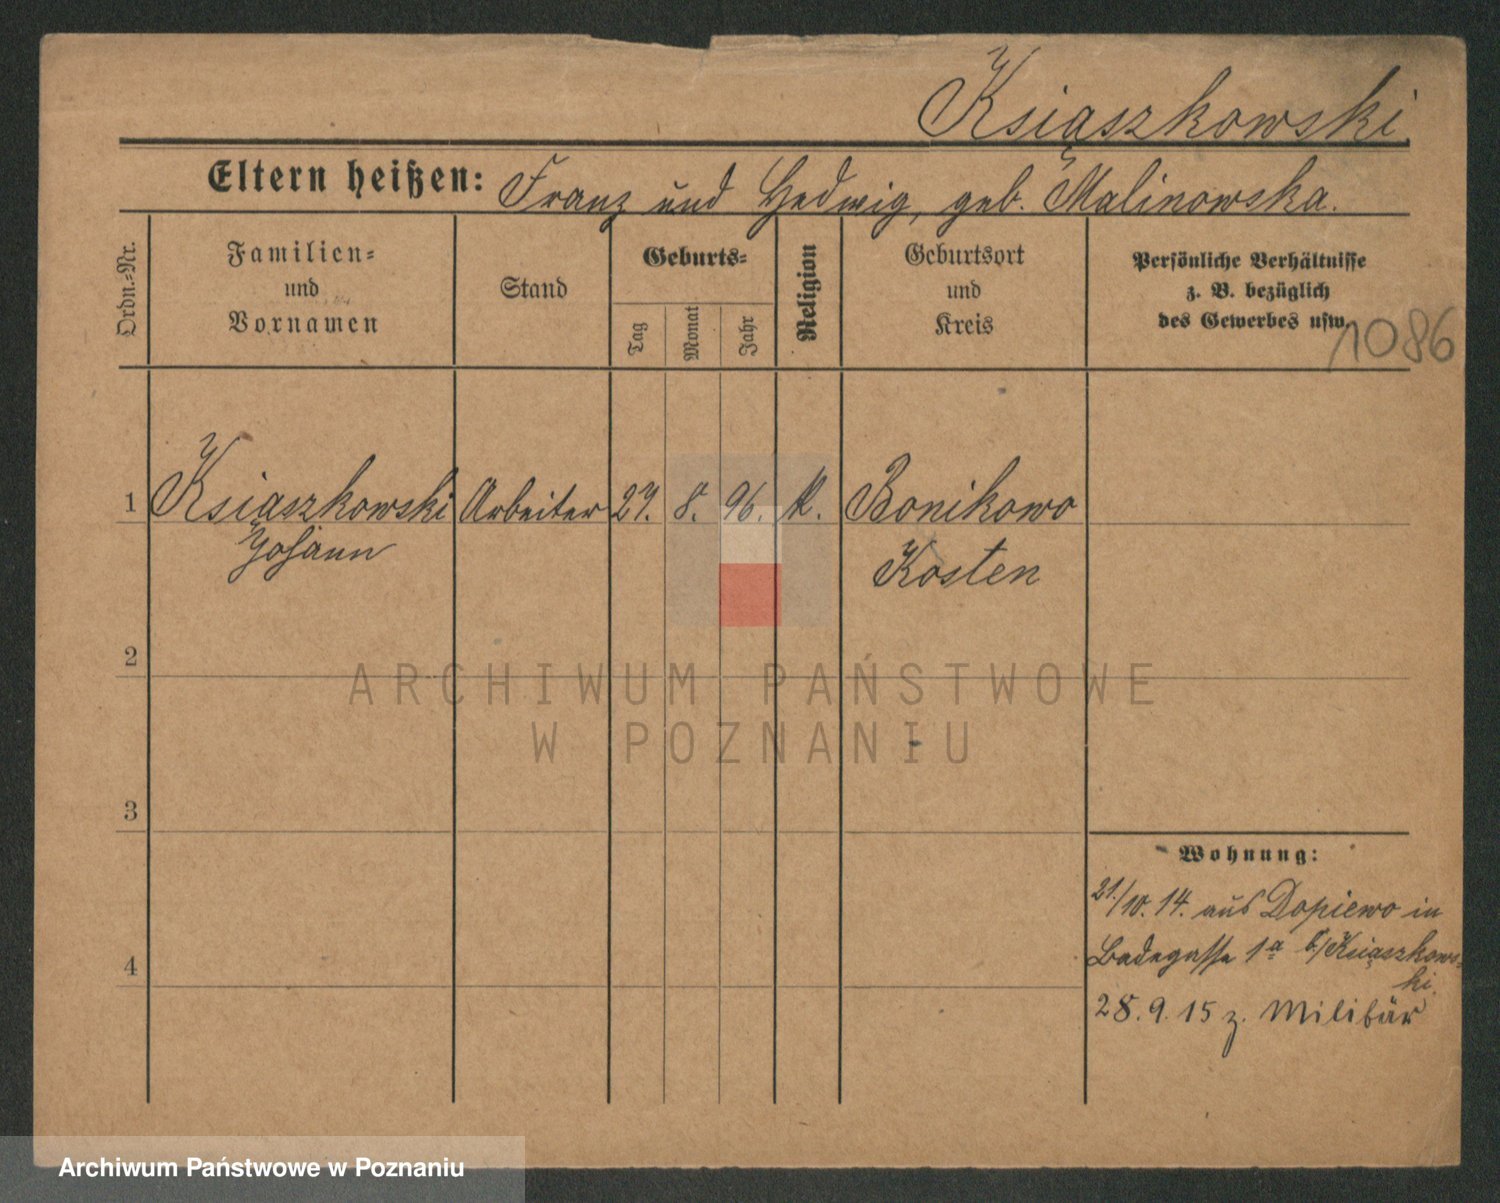 Książkowski.
Eltern heißen: Franz und Hedwig, geb. Malinowska.
Ordn.-Nr.
Familien-
und
Vornamen
Stand
Geburts-
Tag
Monat
Jahr
Religion
Geburtsort
und
Kreis
Persönliche Verhältnisse
z. B. bezüglich
des Gewerbes usw.
1086
1 Ksiąszkowski Arbeiter 27. 8. 96. K. Bonikowo
Johann
Kosten
2
ARCHIWUM PAŃSTWOWE
W POZNANIU
3
Wohnung:
21./10. 14. aus Dopiewo in
Badegasse 1a b/Ksiąszkows-
ki.
4
28. 9. 15 z. Militär
Archiwum Państwowe w Poznaniu